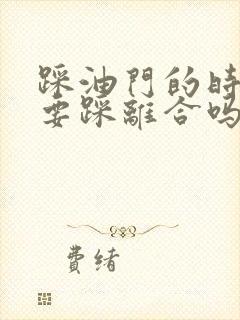 踩油門的時
要踩離合嗎
費緒